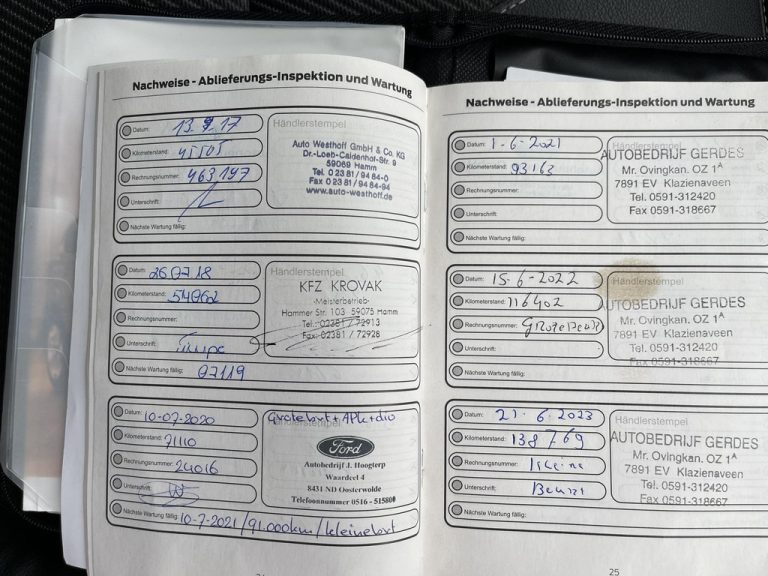 Nachweise - Ablieferungs-Inspektion und Wartung
Datum: 13.9.17
Kilometerstand: 45505
Rechnungsnummer: 463197
Unterschrift:
Nächste Wartung fällig:
Händlerstempel
Auto Westhoff GmbH & Co. KG
Dr.-Loeb-Caldenhof-Str. 9
59069 Hamm
Tel. 0 23 81 / 94 84-0
Fax 0 23 81 / 94 84-94
www.auto-westhoff.de
Datum: 26.07.18
Kilometerstand: 54062
Rechnungsnummer:
Unterschrift:
Nächste Wartung fällig: 07119
Händlerstempel
KFZ KROVAK
-Meisterbetrieb-
Hammer Str. 103 59075 Hamm
Tel.: 02381 / 72913
Fax: 02381 / 72928
Datum: 10-07-2020
Kilometerstand: 71110
Rechnungsnummer: 24016
Unterschrift:
Nächste Wartung fällig: 10-7-2021/91.000km/kleinebrt
Grotebrt + APK + dio
Händlerstempel
Ford
Autobedrijf J. Hoogterp
Waardeel 4
8431 ND Oosterwolde
Telefoonnummer 0516 - 515800
Nachweise - Ablieferungs-Inspektion und Wartung
Datum: 1-6-2021
Kilometerstand: 93163
Rechnungsnummer:
Unterschrift:
Nächste Wartung fällig:
Händlerstempel
AUTOBEDRIJF GERDES
Mr. Ovingkan. OZ 1A
7891 EV Klazienaveen
Tel. 0591-312420
Fax 0591-318667
Datum: 15-6-2022
Kilometerstand: 116402
Rechnungsnummer: Grote Beurt
Unterschrift:
Nächste Wartung fällig:
Händlerstempel
AUTOBEDRIJF GERDES
Mr. Ovingkan. OZ 1A
7891 EV Klazienaveen
Tel. 0591-312420
Fax 0591-318667
Datum: 21-6-2023
Kilometerstand: 138769
Rechnungsnummer: Kleine
Unterschrift: Beurt
Nächste Wartung fällig:
Händlerstempel
AUTOBEDRIJF GERDES
Mr. Ovingkan. OZ 1A
7891 EV Klazienaveen
Tel. 0591-312420
Fax 0591-318667
25